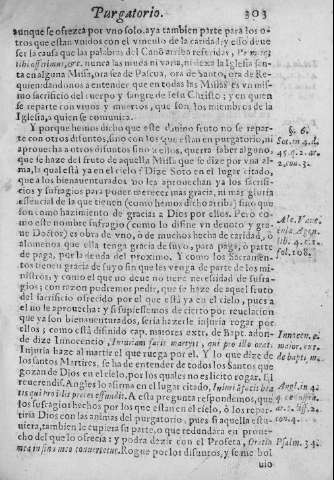 Purgatorio. 303
aunque se ofrezca por vno solo, aya tambien parte para los o-
tros que estan vnidos con el vinculo de la caridad: y esso deue
ser la causa que las palabras del Canõ arriba referidas, Pro
tibi offerimus, &c. nunca las muda ni varia, ni dexa la Iglesia sen-
ta en alguna Missa, ora sea de Pascua, ora de Santo, ora de Re-
quien dandonos a entender que en todas las Missas es vn mis-
mo sacrificio del cuerpo y sangre de Iesu Christo; y con quien
se reparte con viuos y muertos, que son los miembros de la
Iglesia, a quien se comunica.
Y porque hemos dicho que este diuino fruto no se repar-
te con otros difuntos, sino con los que estan en purgatorio, ni
aprouecha a otros difuntos sino a ellos, querra saber alguno,
que se haze del fruto de aquella Missa que se dize por vna al-
ma, la qual està ya en el cielo? Dize Soto en el lugar citado,
que a los bienauenturados no les aprouechan ya los sacrifi-
cios y sufragios para poder merecer mas gracia, ni mas gloria
essencial de la que tienen (como hemos dicho arriba) sino que
son como hazimiento de gracias a Dios por ellos. Pero co-
mo este nombre sufragio (como lo difine vn docto y gra-
ue Doctor) es obra de vno, ò de muchos hecho de caridad, ò
alomenos que ella tenga gracia de suyo, para paga, ò parte
de paga, por la deuda del proximo. Y como los Sacramen-
tos tienen gracia de suyo sin que les venga de parte de los mi-
nistros, y como el que no deue no tiene necessidad de sufra-
gios; con razon podremos pedir, que se haze de aquel fruto
del sacrificio ofrecido por el que està ya en el cielo, pues a
el no le aprouecha; y si supiessemos de cierto por reuelacion
que ya son bienauenturados, seria hazerle injuria rogar por
ellos; como està difinido cap. maiores extr. de Bapt. adon-
de dize Innocencio, Iniuriam facit martyri, qui pro illo orat.
Injuria haze al martir el que ruega por el. Y lo que dize de
los santos Martires, se ha de entender de todos los Santos que
gozan de Dios en el cielo, por los quales no es licito rogar. El
reuerendis. Angles lo afirma en el lugar citado,
A esta pregunta respondemos, que
los sufragios hechos por los que estan en el cielo, ò los repar-
tiria Dios con las animas del purgatorio, pues si aquella estu-
uiera, tambien le cupiera su parte, o que redundara en proue-
cho del que lo ofrecia: y podra dezir con el Profeta, Oratio
mea in sinu meo conuertetur. Rogue por los difuntos, y se me bol
uio
§. 6.
Sot. in 4. d.
45. q. 2. ar.
2. con. 3.
lib. 4. c. 1.
fol. 108.
Innocen. c.
maior. ext.
de bapti.
Angl. in 4.
Psalm. 34.